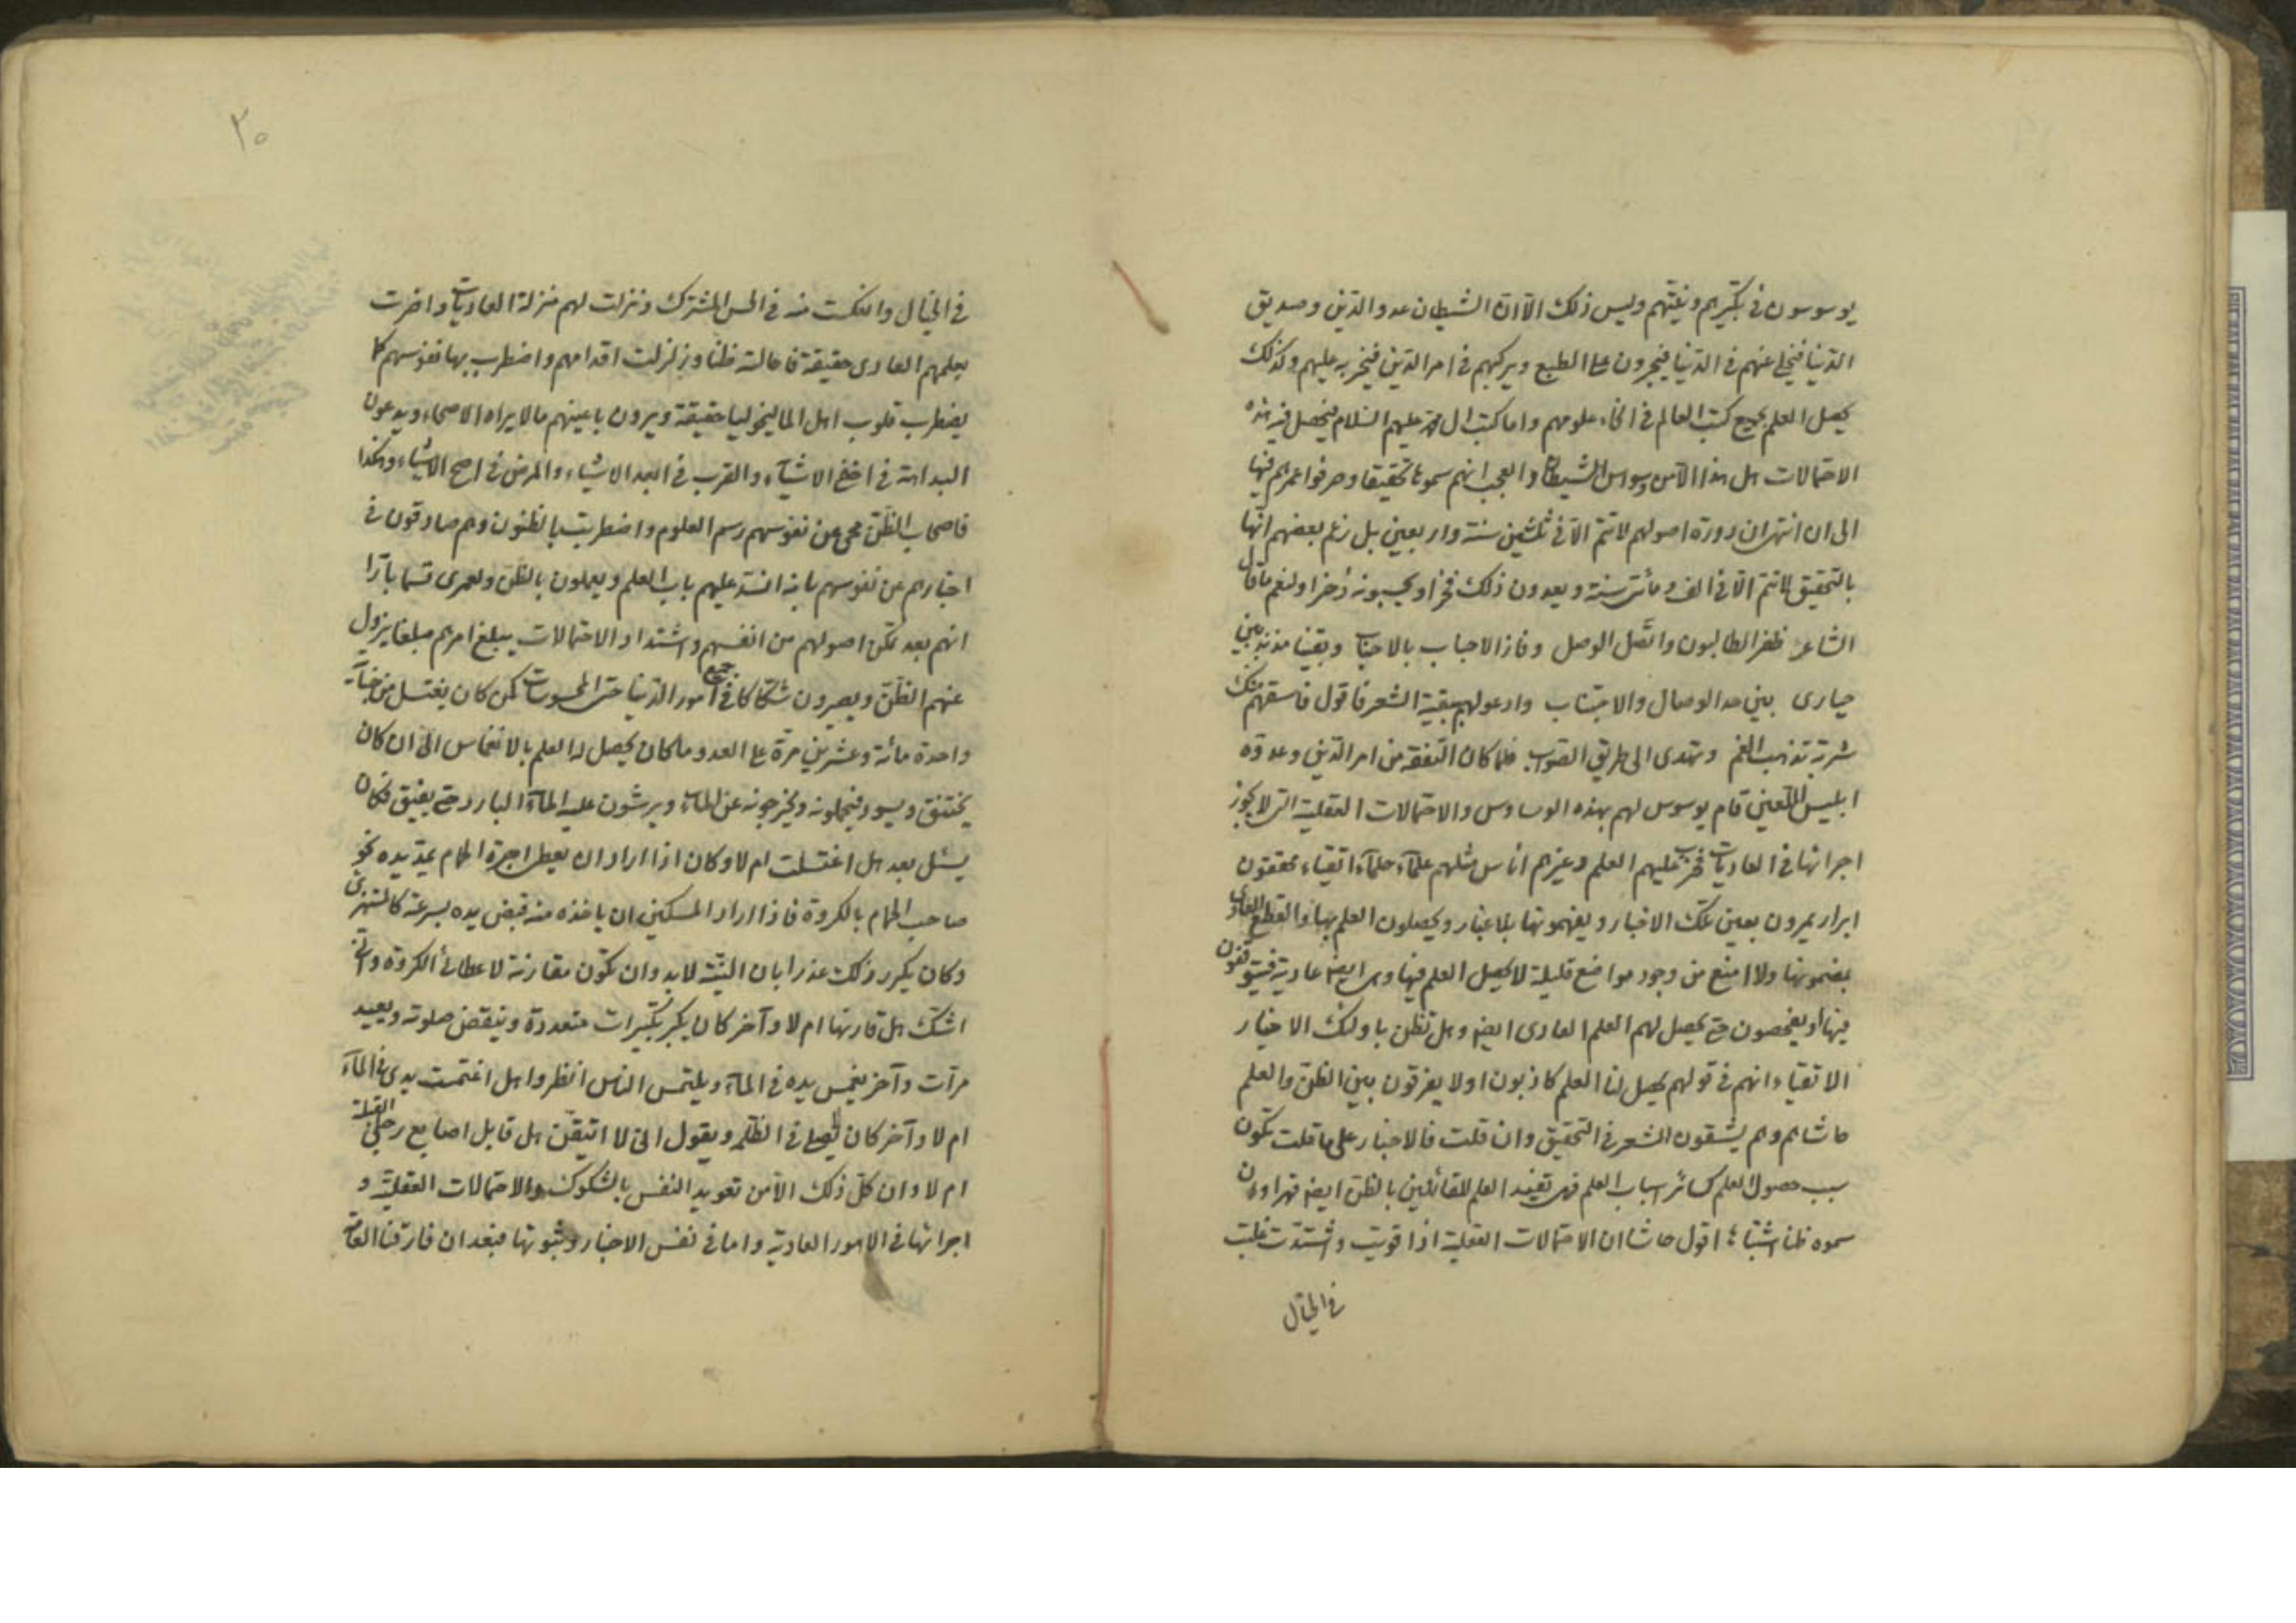 يوسوسون في تكبيرهم ونيتهم وليس ذلك الا ان الشيطان عدو الدين وصديق
الدنيا فيخلي عنهم في الدنيا فيجرون على الطبع ويركبهم في امر الدين فيخربه عليهم وكذلك
يحصل العلم بجميع كتب العالم في انحاء علومهم واما كتب ال محمد عليهم السلام فيحصل فيه هذه
الاحتمالات هل هذا الا من وسواس الشيطان والعجب انهم سموها تحقيقا وصرفوا عمرهم فيها
الى ان اشتهر ان دورة اصولهم لا تتم الا في ثلثين سنة واربعين بل زعم بعضهم انها
بالتحقيق لا تتم الا في الف ومأتى سنة ويعدون ذلك فخرا ويحسبونه ذخرا ولنعم ما قال
الشاعر ظفر الطالبون واتصل الوصل وفاز الاحباب بالاحباب وبقينا مذبذبين
حيارى بين حد الوصال والاجتناب وادعو لهم ببقية الشعر فاقول فاسقهم منك
شربة تذهب الغم وتهدى الى طريق الصواب فلما كان التفقه من امر الدين وعدوه
ابليس اللعين قام يوسوس لهم بهذه الوساوس والاحتمالات العقلية التى لا يجوز
اجرائها في العاديات فخرب عليهم العلم وغيرهم اناس مثلهم علمآء حلمآء اتقياء محققون
ابرار يمرون بعين تلك الاخبار ويفهمونها بلا غبار ويحصلون العلم بها والقطع العادى
بمضمونها ولا امنع من وجود مواضع قليلة لا يحصل العلم فيها وهى ايضا عادية فيتوقفون
فيها او يفحصون حتى يحصل لهم العلم العادى ايضا وهل تظن باولئك الاخيار
الاتقياء انهم في قولهم يحصل لنا العلم كاذبون او لا يفرقون بين الظن والعلم
حاشاهم وهم يشقون الشعر في التحقيق وان قلت فالاخبار على ما قلت تكون
سبب حصول العلم كسائر اسباب العلم فهى تفيد العلم للقائلين بالظن ايضا قهرا وان
سموه ظنا اشتباها اقول حاشا ان الاحتمالات العقلية اذا قويت واشتدت غلبت
في الخيال
٢٠
في الخيال وانعكست منه في الحس المشترك ونزلت لهم منزلة العاديات واضرت
بعلمهم العادى حقيقة فاحالته ظنا وزلزلت اقدامهم واضطرب بها نفوسهم كما
يضطرب قلوب اهل الماليخوليا حقيقة ويرون باعينهم ما لا يراه الاصحاء ويدعون
البداهة في اخفى الاشيآء والقرب في ابعد الاشياء والمرض في اصح الاشياء وهكذا
فاصحاب الظن محى عن نفوسهم رسم العلوم واضطربت بالظنون وهم صادقون في
اخبارهم عن نفوسهم بانه انسد عليهم باب العلم ويعملون بالظن ولعمرى قسما بارا
انهم بعد تمكن اصولهم من انفسهم واشتداد الاحتمالات يبلغ امرهم مبلغا يزول
عنهم الظن ويصيرون شكاكا في جميع امور الدنيا حتى المحسوسات كمن كان يغتسل من جنابة
واحدة مائة وعشرين مرة على العدد وما كان يحصل له العلم بالانغماس الى ان كان
يختنق ويسود فيحملونه ويخرجونه عن الماء ويرشون عليه المآء البارد حتى يفيق فكان
يسئل بعد هل اغتسلت ام لا وكان اذا اراد ان يعطى اجرة الحمام يمد يده نحو
صاحب الحمام بالكروة فاذا اراد المسكين ان ياخذه منه قبض يده بسرعة كالمستهزئ
وكان يكرر ذلك عذرا بان النية لابد وان تكون مقارنة لاعطائى الكروة وانى
اشك هل قارنها ام لا وآخر كان يكبر تكبيرات متعددة وينقض صلوته ويعيد
مرات وآخر يغمس يده في المآء ويلتمس الناس انظروا هل اغتمست يدى في المآء
ام لا وآخر كان يصلى في الظلمة ويقول انى لا اتيقن هل قابل اصابع رجلى القبلة
ام لا وان كل ذلك الا من تعويد النفس بالشكوك والاحتمالات العقلية و
اجرائها في الامور العادية واما في نفس الاخبار وثبوتها فبعد ان فارقنا